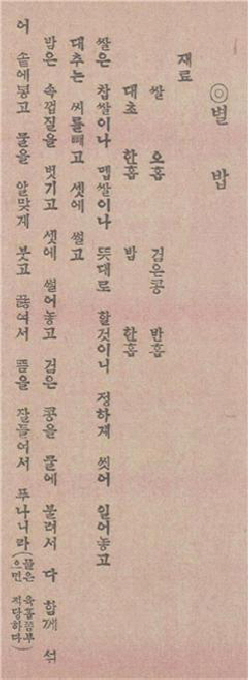 ◎별 밥
재료
쌀 오홉 검은콩 반홉
대초 한홉 밤 한홉
쌀은 찹쌀이나 멥쌀이나 뜻대로 할것이니 정하게 씻어 일어놓고
대추는 씨를빼고 셋에 썰고
밤은 속껍질을 벗기고 셋에 썰어놓고 검은 콩을 물에 불려서 다 함께 섞
어 솥에둫고 물을 알맞게 붓고 끓여서 뜸을 잘들여서 푸나니라(물은 육홉쯤부
으면 적당하다)